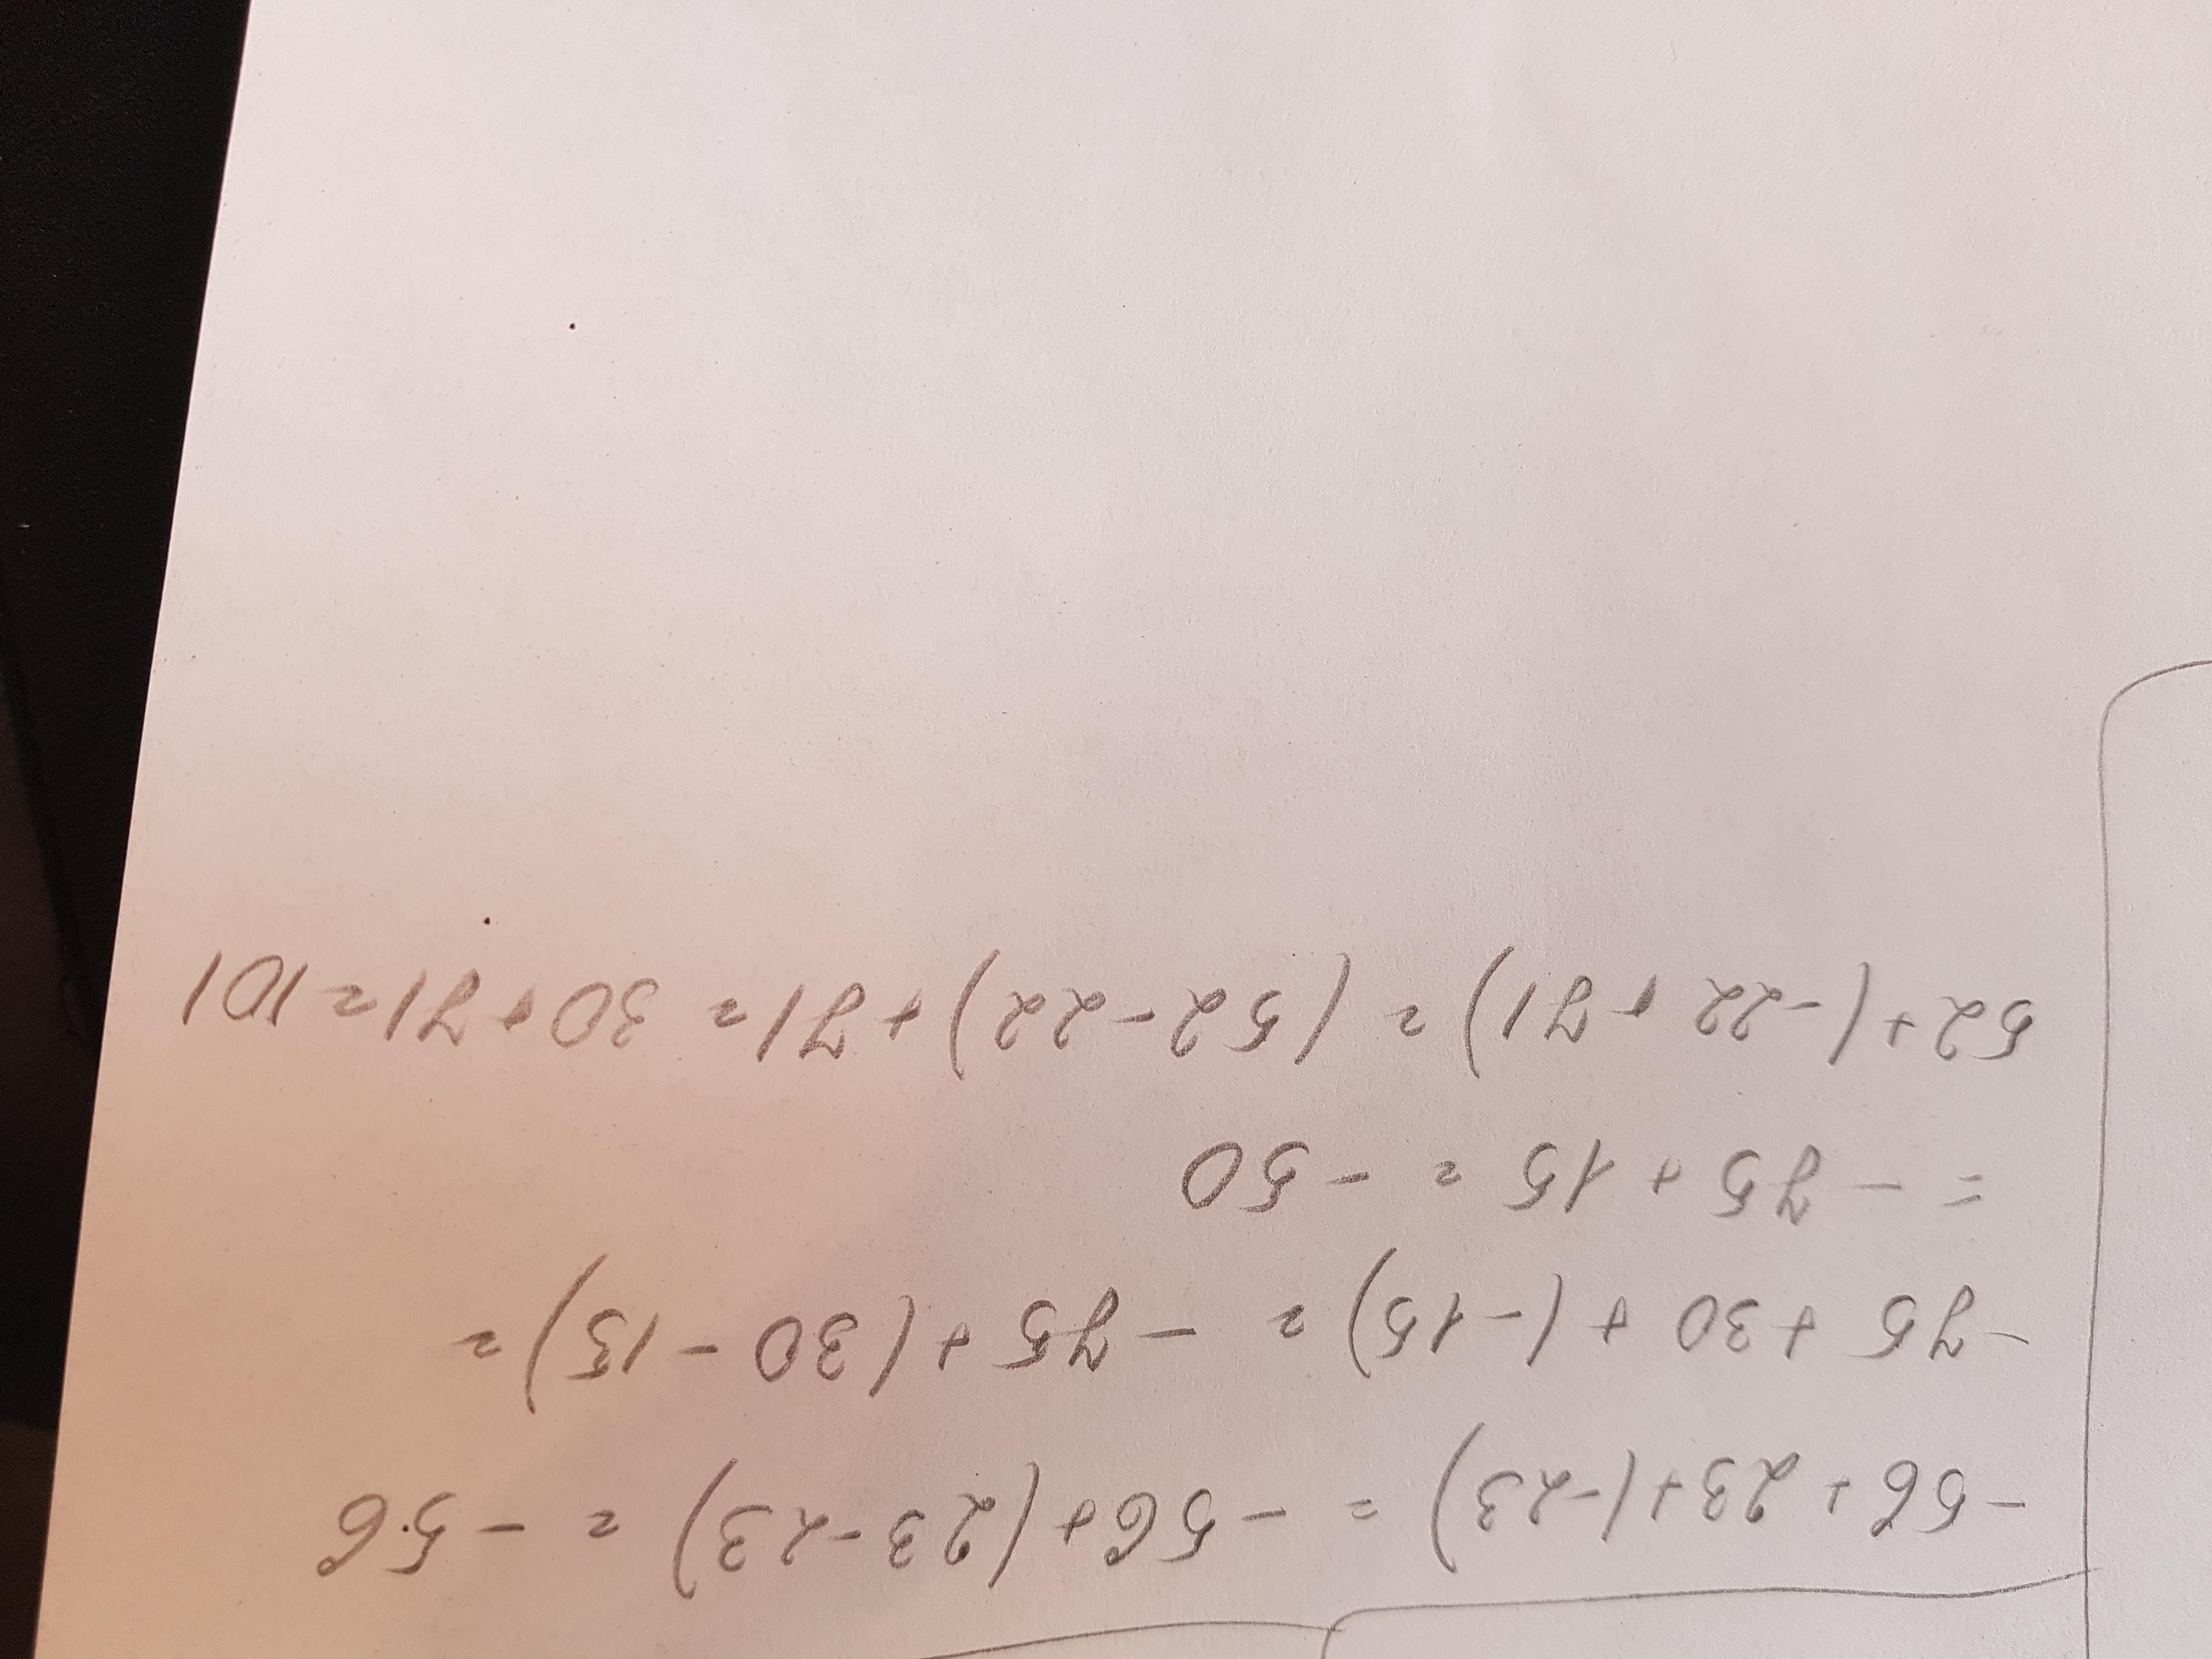 -56+23+(-23) = -56+(23-23) = -56
-75+30+(-15) = -75+(30-15) =
= -75+15 = -50
52+(-22+71) = (52-22)+71 = 30+71 = 101